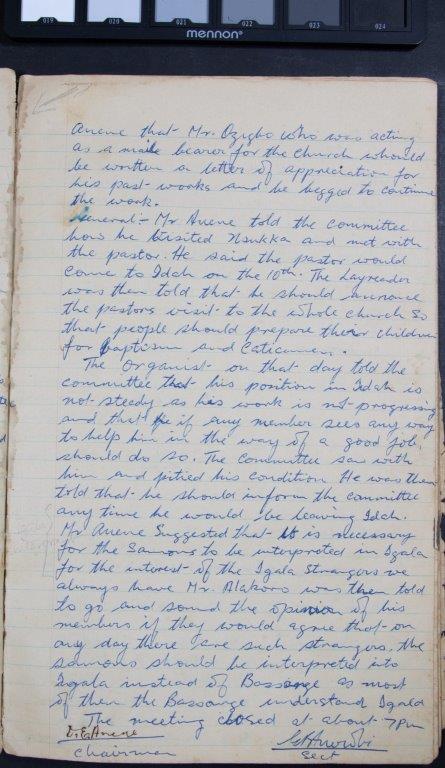 019 020 021 022 023 024
mennon®
Anene that Mr. Ozigbo who was acting
as a male bearer for the Church whould
be written a letter of appreciation for
his past works and be begged to continue
the work.
General - Mr Anene told the committee
how he visited Nsukka and met with
the pastor. He said the pastor would
come to Idah on the 10th. The Layreader
was then told that he should announce
the pastors visit to the whole church so
that people should prepare their children
for baptism and
The Organist on that day told the
committee that his position in Idah is
not steady as his work is not progressing
and that if any member sees any way
to help him in the way of a good job,
should do so. The Committee saw with
him and pitied his condition. He was then
told that he should inform the committee
any time he would be leaving Idah.
Mr Anene Suggested that it is necessary
for the Samons to be interpreted in Igala
for the interest of the Igala Strangers we
always have Mr. Alakoro was then told
to go and sound the opinion of his
members if they would agree that on
any day there are such strangers, the
samons should be interpreted into
Igala instead of Bassange as most
of them the Bassange understand Igala
The meeting closed at about 7pm
Anene
Chairman
Sect